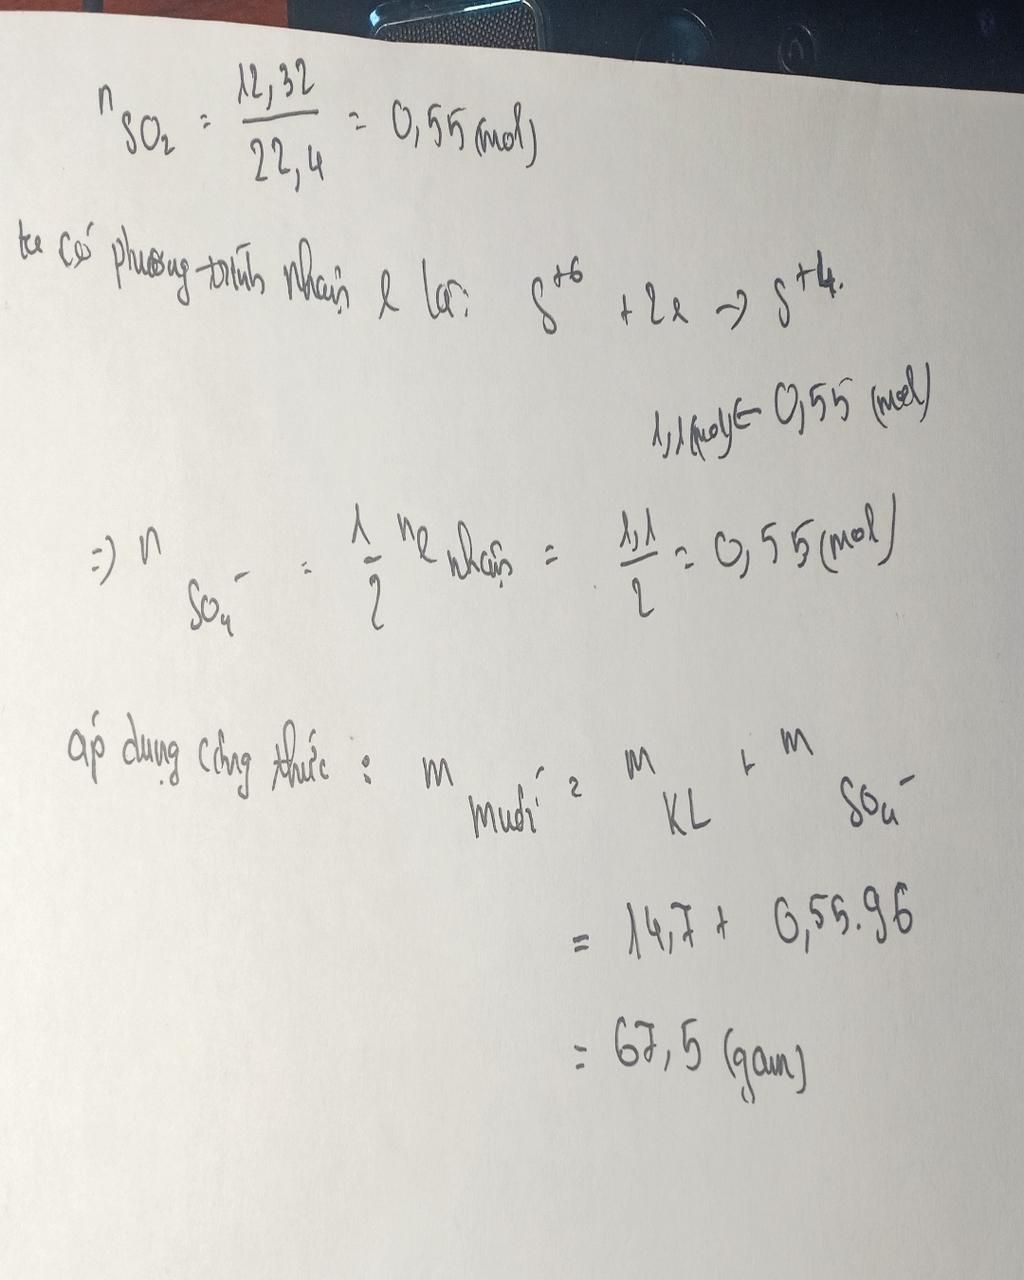 n SO₂ = 12,32 / 22,4 = 0,55 (mol)
ta có phương trình nhận e là: S⁺⁶ + 2e → S⁺⁴.
1,1 (mol) ← 0,55 (mol)
=> n SO₄⁻ = 1/2 ne nhận = 1,1/2 = 0,55 (mol)
áp dụng công thức : m muối = m KL + m SO₄⁻
= 14,7 + 0,55.96
= 67,5 (gam)